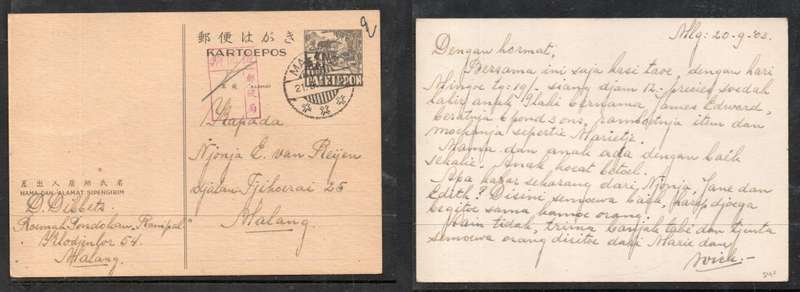 郵便はがき
KARTOEPOS
DAI NIPPON
郵便局
Kapada
Njonja E. van Reijen
Djalan Tjikerai 25
Malang.
差出人居所氏名
NAMA DAN ALAMAT SIPENGIRIM
D. Dibbets
Roemah Pondokan „Kanipal"
Klodjenlor 54.
Malang.
Mlg: 20-9-'03.
Dengan hormat,
Bersama ini saja kasi taoe, dengan hari
Minggoe tg: 19/- siang djam 12. precies soedah
lahir anak laki bernama, James Edward,
beratnja 6 pond 3 ons, ramboetnja item dan
moekanja seperti Marietje.
Mama dan anak ada dengan baik
sekali. Anak koeat betoel.
Apa kabar sekarang dari Njonja, Jane dan
Edith? Disini semoewa baik, harap djoega
begitoe sama kamoe orang.
Lain tidak, trima banjak tabe dan tjinta
semoewa orang disitoe dari Marie dan
Wiek:-